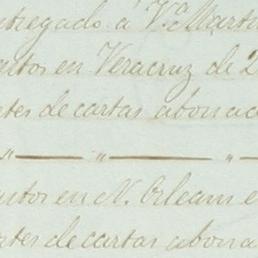 ntregado á V.ª Martin
astos en Veracruz de 2
ntes de cartas abonad
" — " — " —
astos en N. Orleans e
ntes de cartas abona